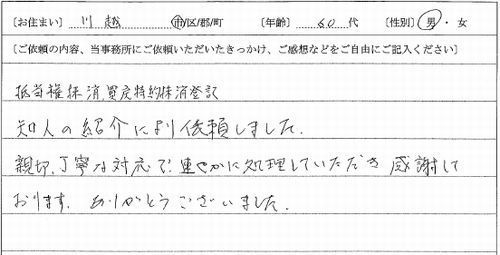 【お住まい】 川越 市/区/郡/町 【年齢】 60 代 【性別】 男 ・ 女
〔ご依頼の内容、当事務所にご依頼いただいたきっかけ、ご感想などをご自由にご記入ください〕
抵当権抹消、買戻特約抹消登記
知人の紹介により依頼しました。
親切、丁寧な対応で、速やかに処理していただき 感謝して
おります。ありがとうございました。